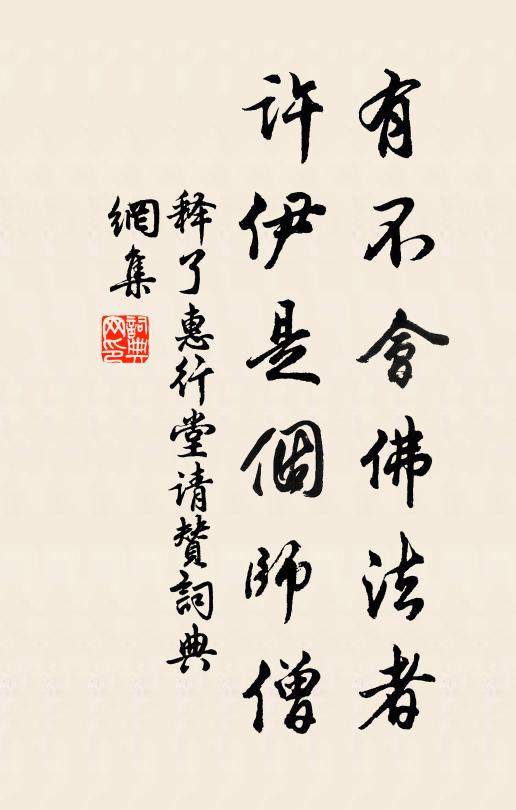 有不會佛法者
許伊是個師僧
释了惠行堂请賛詞典
網集
詞典網印